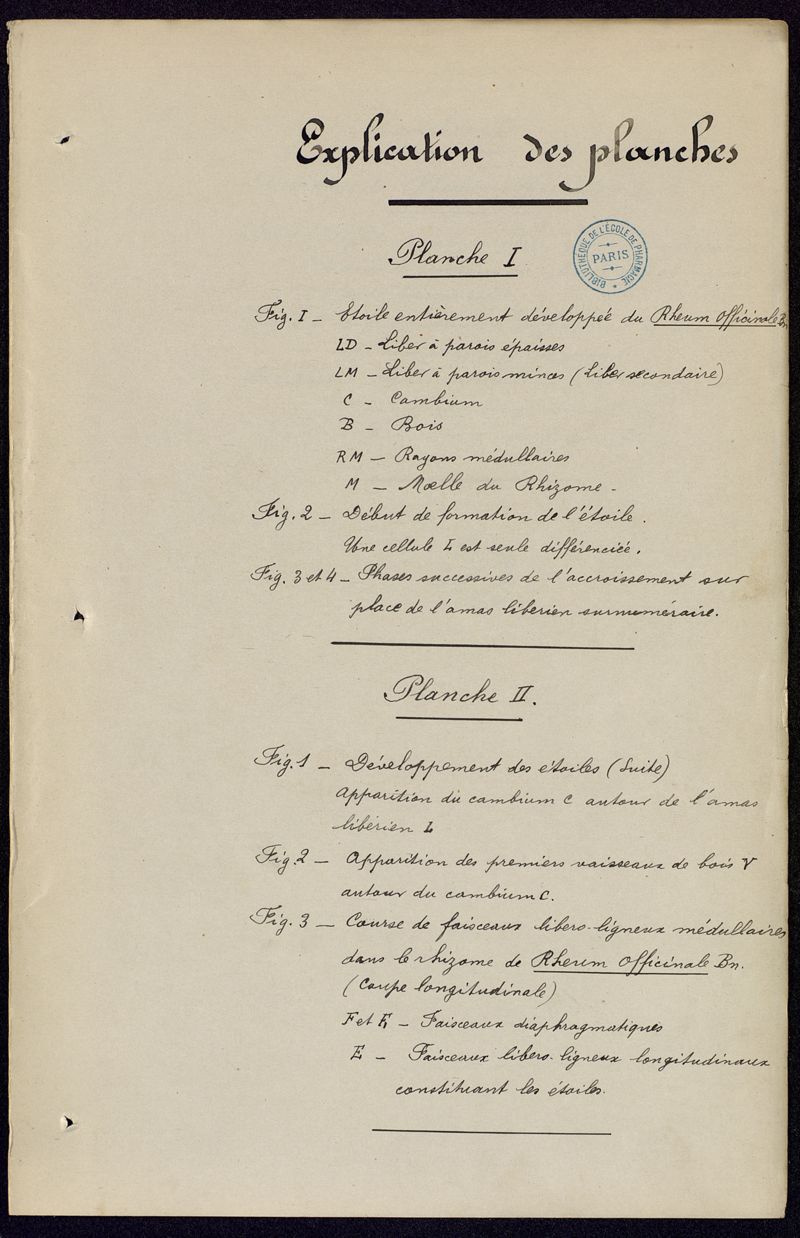 Explication des planches
Planche I
BIBLIOTHÈQUE DE L'ÉCOLE DE PHARMACIE
PARIS
Fig. I - Etoile entièrement développée du Rheum Officinale Bn
LD - Liber à parois épaisses
LM - Liber à parois minces (Liber secondaire)
C - Cambium
B - Bois
RM - Rayons médullaires
M - Moelle du Rhizome -
Fig. 2 - Début de formation de l'étoile.
Une cellule L est seule différenciée.
Fig. 3 et 4 - Phases successives de l'accroissement sur
place de l'amas libérien surnuméraire.
Planche II.
Fig. 1 - Développement des étoiles (Suite)
Apparition du cambium C autour de l'amas
libérien L
Fig. 2 - Apparition des premiers vaisseaux de bois V
autour du cambium C.
Fig. 3 - Course de faisceaux libero-ligneux médullaires
dans le rhizome de Rheum Officinale Bn.
(Coupe longitudinale)
F et F, - Faisceaux diaphragmatiques
E - Faisceaux libero-ligneux longitudinaux
constituant les étoiles.